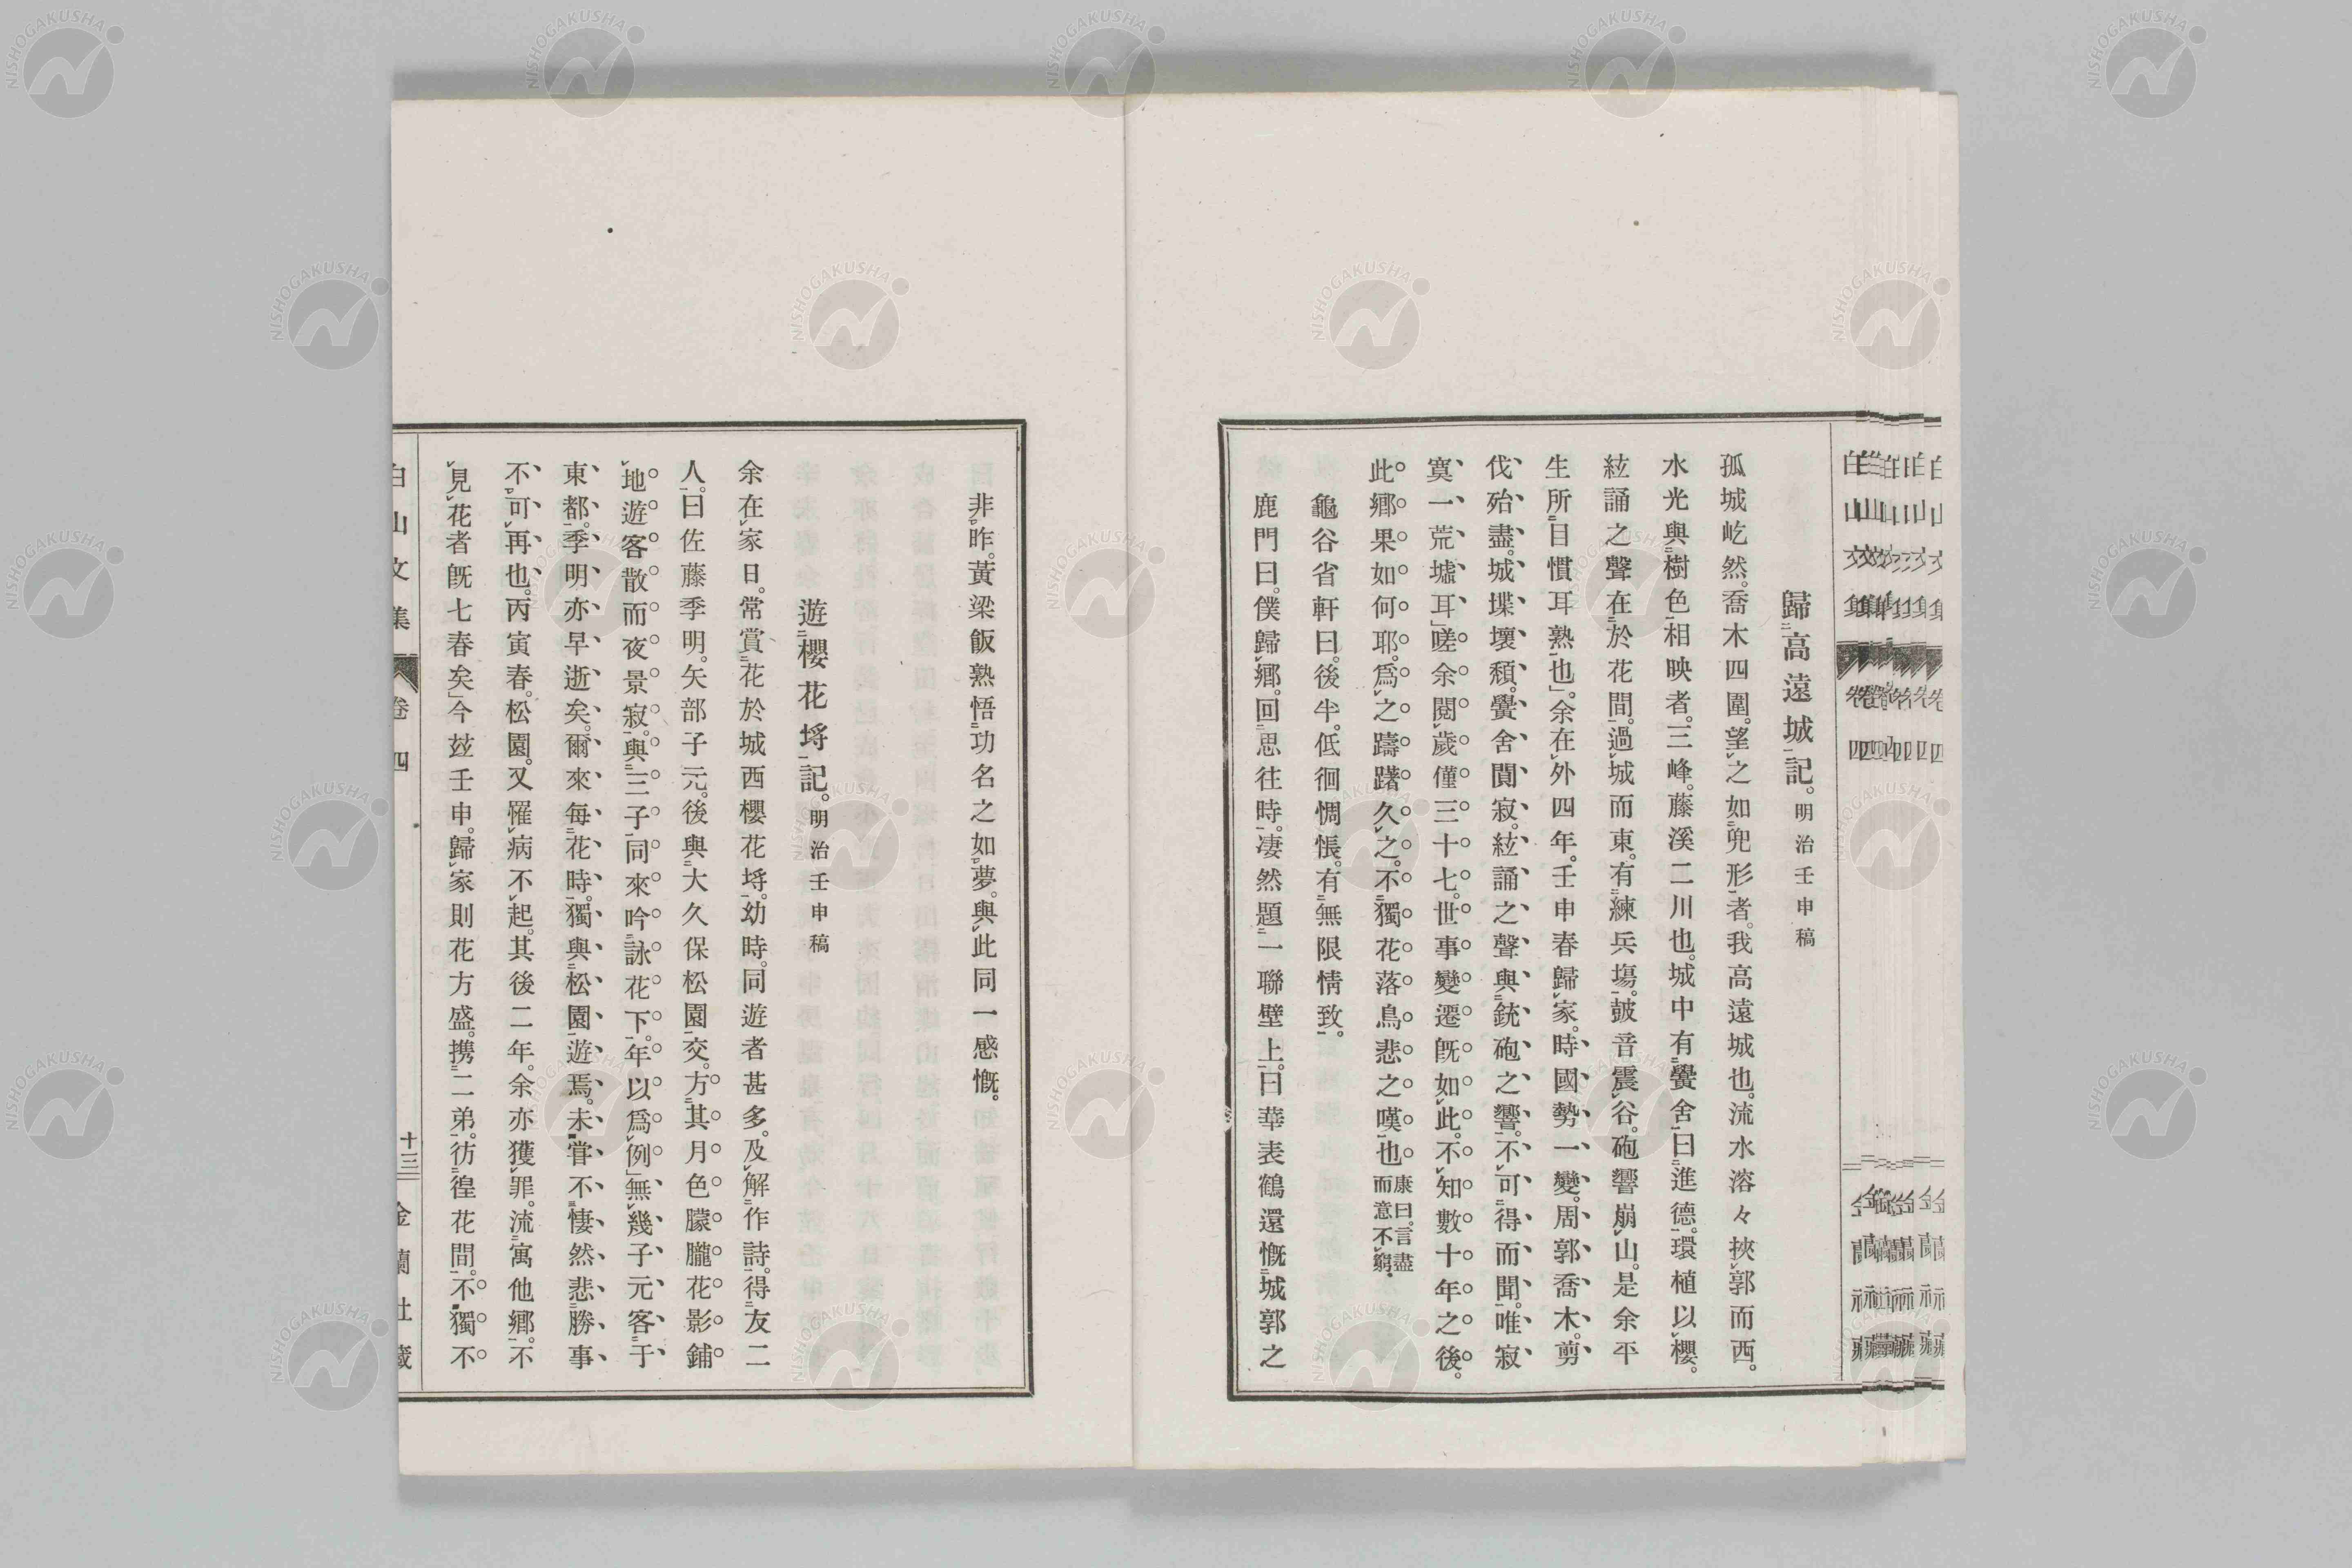 歸高遠城記。明治壬申稿
孤城屹然。喬木四圍。望之如兜形者。我高遠城也。流水溶々挾郭而西。
水光與樹色相映者。三峰。藤溪二川也。城中有黌舍曰進德。環植以櫻。
絃誦之聲在於花間。過城而東。有練兵塲。皷音震谷。砲響崩山。是余平
生所目慣耳熟也」。余在外四年。壬申春歸家。時國勢一變。周郭喬木。剪
伐殆盡。城堞壞頹。黌舍閴寂。絃誦之聲與銃砲之響。不可得而聞。唯寂
寞一荒墟耳」嗟余閱歲僅三十七。世事變遷既如此。不知數十年之後。
此鄉果如何耶。爲之躊躇久之。不獨花落鳥悲之嘆也康曰。言盡而意不窮。
龜谷省軒曰。後半。低徊惆悵。有無限情致。
鹿門曰。僕歸鄉。回思往時。凄然題一聯壁上。曰華表鶴還慨城郭之
非昨。黃梁飯熟悟功名之如夢。與此同一感慨。
遊櫻花埓記。明治壬申稿
余在家日。常賞花於城西櫻花埓。幼時。同遊者甚多。及解作詩。得友二
人。曰佐藤季明。矢部子元。後與大久保松園交。方其月色朦朧花影鋪
地。遊客散而夜景寂。與三子同來吟詠花下。年以爲例」無幾子元客于
東都。季明亦早逝矣。爾來每花時。獨與松園遊焉。未嘗不悽然悲勝事
不可再也。丙寅春。松園。又罹病不起。其後二年。余亦獲罪。流寓他鄉。不
見花者既七春矣」今玆壬申。歸家則花方盛。携二弟。彷徨花間。不獨不
白山文集 卷四 十三 金蘭社藏